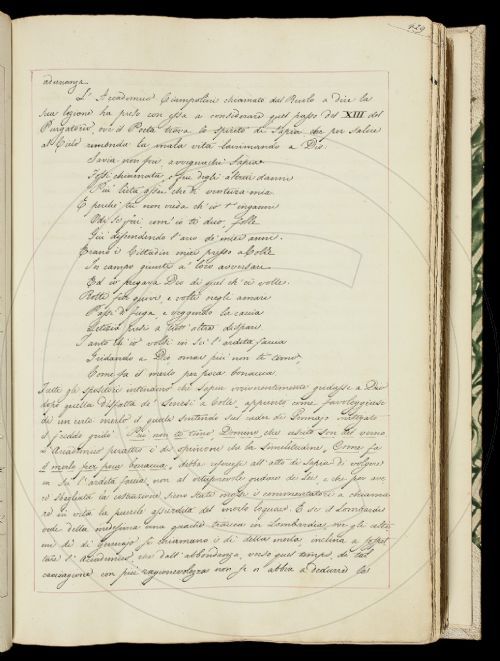 429
adunanza.
L'Accademico Ciampolini chiamato dal Ruolo a dire la
sua lezione ha preso con essa a considerare quel passo del XIII del
Purgatorio, ove il Poeta trova lo spirito di Sapia che per salire
al Cielo rimonda la mala vita lacrimando a Dio.
Savia non fui, avvegnachè Sapia
Fossi chiamata, e fui degli altrui danni
Più lieta assai che di ventura mia
E perchè tu non creda ch'io t'inganni
Odi se fui com'io ti dico, folle
Già discendendo l'arco de' miei anni.
Erano i Cittadin miei presso a Colle
In campo giunti a' loro avversari
Ed io pregava Dio di quel ch'ei volle.
Rotti fur quivi, e volti negli amari
Passi di fuga, e veggendo la caccia
Letizia presi a tutt'altre dispari
Tanto ch'io volsi in su l'ardita faccia
Gridando a Dio omai più non ti temo,
Come fa il merlo per poca bonaccia
Tutti gli spositori intendono che Sapia irriverentemente gridasse a Dio
dopo quella disfatta de' Senesi a Colle, appunto come favoleggiasi
di un certo merlo il quale sentendo sui
il freddo gridò: Più non ti temo, Domine, che uscito son del verno
L'Accademico peraltro è di opinione che la similitudine, Come fa
il merlo per poca bonaccia, debba riferirsi all'atto di Sapia di volgere
in su l'ardita faccia, non al
sbagliata la costruzione, siano stati mossi i commentatori a chiama
re in vita la puerile assurdità del merlo loquace. E se i Lombardi
vede della medesima una qualche traccia in Lombardia, ove gli ulti
mi dì di Gennajo si chiamano i dì della merla, inclina a sospet
tare l'accademico
con più ragionevolezza non se n'abbia a dedurre la